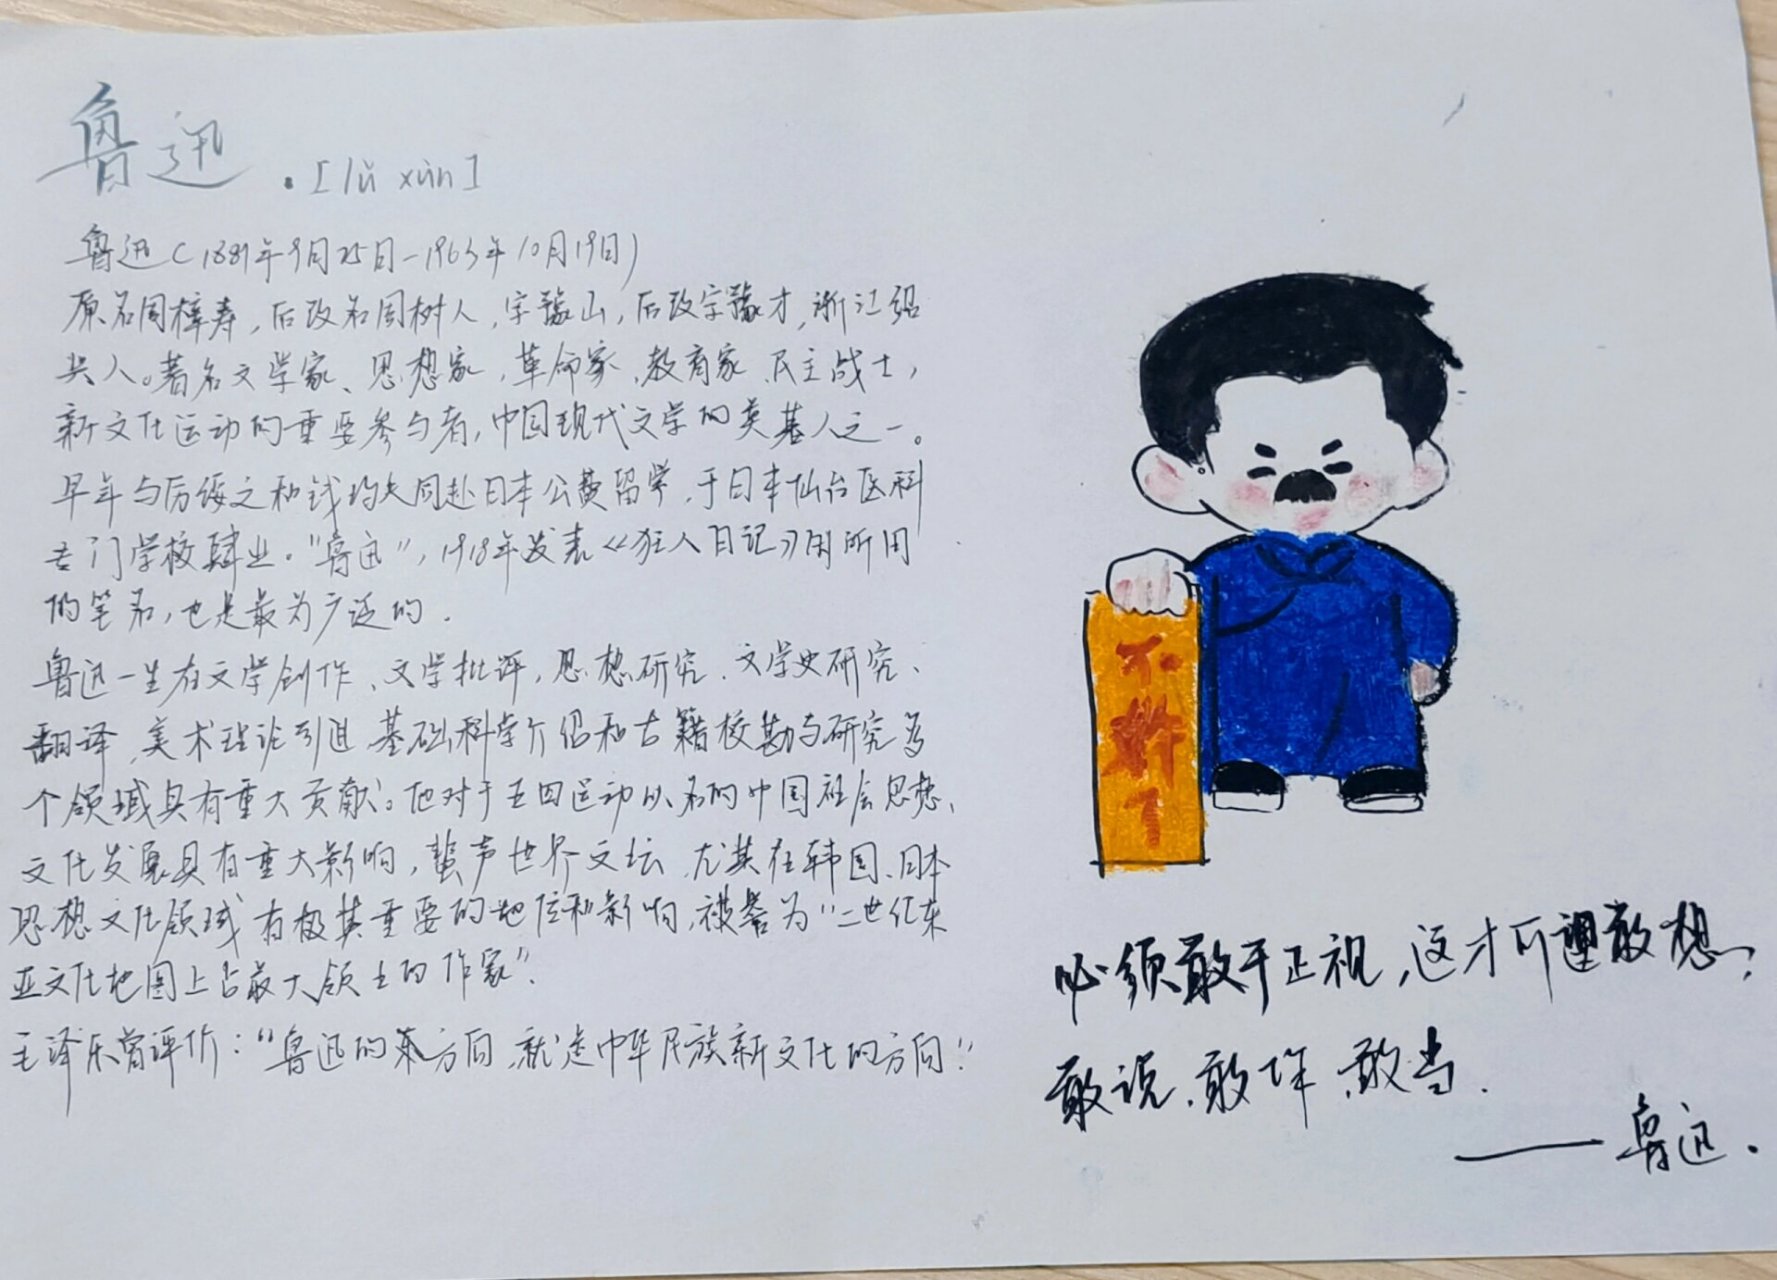 鲁迅.[lǔ xùn]
鲁迅(1881年9月25日-1963年10月19日)
原名周樟寿,后改名周树人,字豫山,后改字豫才,浙江绍
兴人。著名文学家、思想家,革命家,教育家、民主战士,
新文化运动的重要参与者,中国现代文学的奠基人之一。
早年与厉绥之和钱均夫同赴日本公费留学,于日本仙台医科
专门学校肄业。"鲁迅",1918年发表《狂人日记》时所用
的笔名,也是最为广泛的.
鲁迅一生在文学创作、文学批评,思想研究、文学史研究、
翻译,美术理论引进、基础科学介绍和古籍校勘与研究多
个领域具有重大贡献。他对于五四运动以后的中国社会思想、
文化发展具有重大影响,蜚声世界文坛,尤其在韩国、日本
思想文化领域有极其重要的地位和影响,被誉为"二世纪东
亚文化地图上占最大领土的作家".
毛泽东曾评价:"鲁迅的方向,就是中华民族新文化的方向."
不
干
了
必须敢于正视,这才可望敢想,
敢说、敢作、敢当.
——鲁迅.